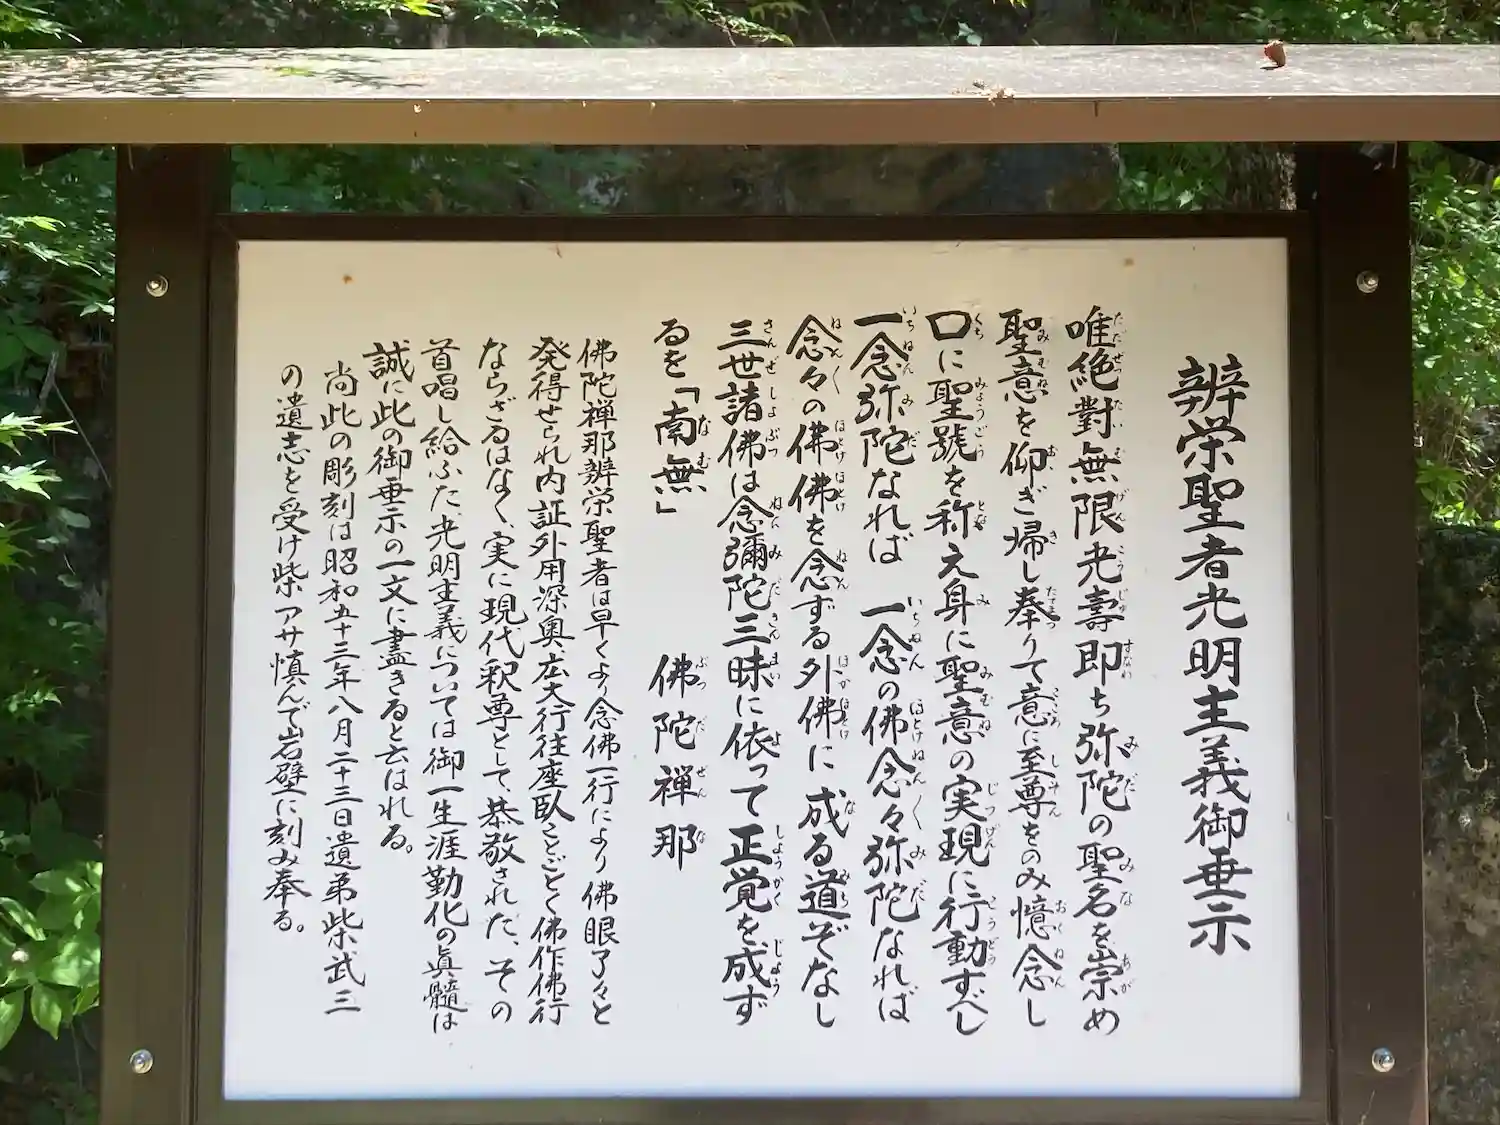 辨栄聖者光明主義御垂示
唯絶對無限光壽即ち弥陀の聖名を崇め
聖意を仰ぎ帰し奉りて意に至尊をのみ憶念し
口に聖號を称え身に聖意の実現に行動すべし
一念弥陀なれば 一念の佛念々弥陀なれば
念々の佛佛を念ずる外佛に成る道ぞなし
三世諸佛は念彌陀三昧に依って正覚を成ず
るを「南無」 佛陀禅那
佛陀禅那辨栄聖者は早くより念佛一行により佛眼了々と
発得せられ内証外用深奥、広大行往座臥ことごとく佛作佛行
ならざるはなく、実に現代釈尊として、恭敬された、その
首唱し給ふた光明主義については御一生涯勤化の眞髓は
誠に此の御垂示の一文に盡きると云はれる。
尚此の彫刻は昭和五十三年八月二十三日遺弟柴武三
の遺志を受け柴アサ慎んで岩壁に刻み奉る。